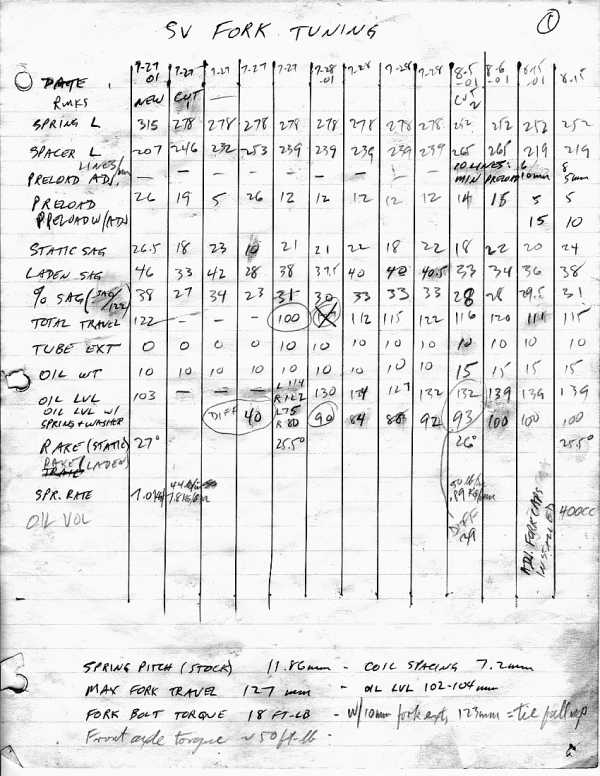 SV FORK TUNING
①
DATE 7-27-01 7-27 7-27 7-27 7-27 7-28-01 7-28 7-28 7-28 8-5-01 8-6-01 8-15-01 8-15
RMKS NEW CUT — CUT 2
SPRING L 315 278 278 278 278 278 278 278 278 252 252 252 252
SPACER L 207 246 232 253 239 239 239 239 239 265 265 219 219
LINES/mm 10 LINES: 6/10mm 8/5mm
PRELOAD ADJ. — — — — — — — — — MIN PRELOAD
PRELOAD 26 19 5 26 12 12 12 12 12 14 15 5 5
PRELOAD W/ADJ 15 10
STATIC SAG 26.5 18 23 10 21 21 22 18 22 18 22 20 24
LADEN SAG 46 33 42 28 38 37.5 40 40 40.5 33 34 36 38
% SAG (SAG/122) 38 27 34 23 31 30 33 33 33 28 28 29.5 31
TOTAL TRAVEL 122 — — — 100 112 115 122 116 120 111 115
TUBE EXT 0 0 0 0 10 10 10 10 10 10 10 10 10
OIL WT 10 10 10 10 10 10 10 10 10 15 15 15 15
OIL LVL 103 — — — L 114 R 122 130 124 127 132 132 139 139 139
OIL LVL W/ SPRING + WASHER DIFF 40 L 75 R 80 90 84 86 92 93 100 100 100
RAKE (STATIC) 27° 25.5° 26° 25.5°
RAKE (LADEN)
TRAIL
SPR. RATE
OIL VOL DIFF 39 ADJ. FORK CAPS INSTALLED 400CC
SPRING PITCH (STOCK) 11.86mm - COIL SPACING 7.2mm
MAX FORK TRAVEL 127 mm - OIL LVL 102-104mm
FORK BOLT TORQUE 18 FT-LB - W/10mm fork ext, 123mm = tie
Front axle torque ~ 50 ft-lb